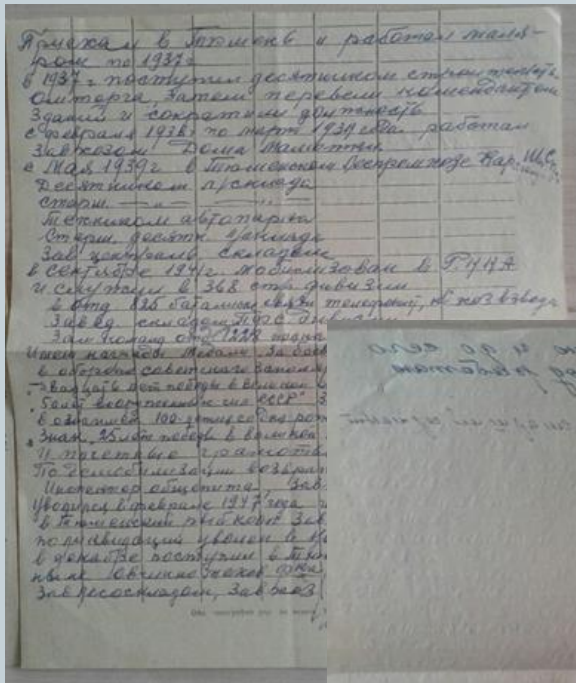 Приехал в Тюмень и работал маля-
ром по 1937г
в 1937 г поступил десятником строительств
омторга, затем перевели комендантом
здания и сократили должность
с февраля 1938г по март 1939 года работал
Завхозом Дома Малютки
с мая 1939г в Тюменском Леспромхозе
Десятником л/склада
старш. — „ — „ —
Техником автопарка
Старш. десятн л/склада
Зав центральн складом
в сентябре 1941г мобилизован в Р.К.К.А
и служил в 368 стр. дивизии
в отд 825 батальон связи телефонист,
Завед. складом П.Ф.С. дивизии
Зам команд отд 1228
Имею награды медали „За боев
в обороне советского Заполяр
„Двадцать лет победы в великой
„50 лет вооруженных сил СССР"
в ознамен 100-летия со дня рож
Знак „25 лет победы в великой
и почетные грамоты
По демобилизации возврат
Инспектор общепита, Зав
Уволился в феврале 1947 года
в Тюменский рыбкооп Зав
по ликвидации уволен в
в декабре поступил в Тюм
Овчинно
Завлесоскладом, Завхоз
ю и до сего
работаю